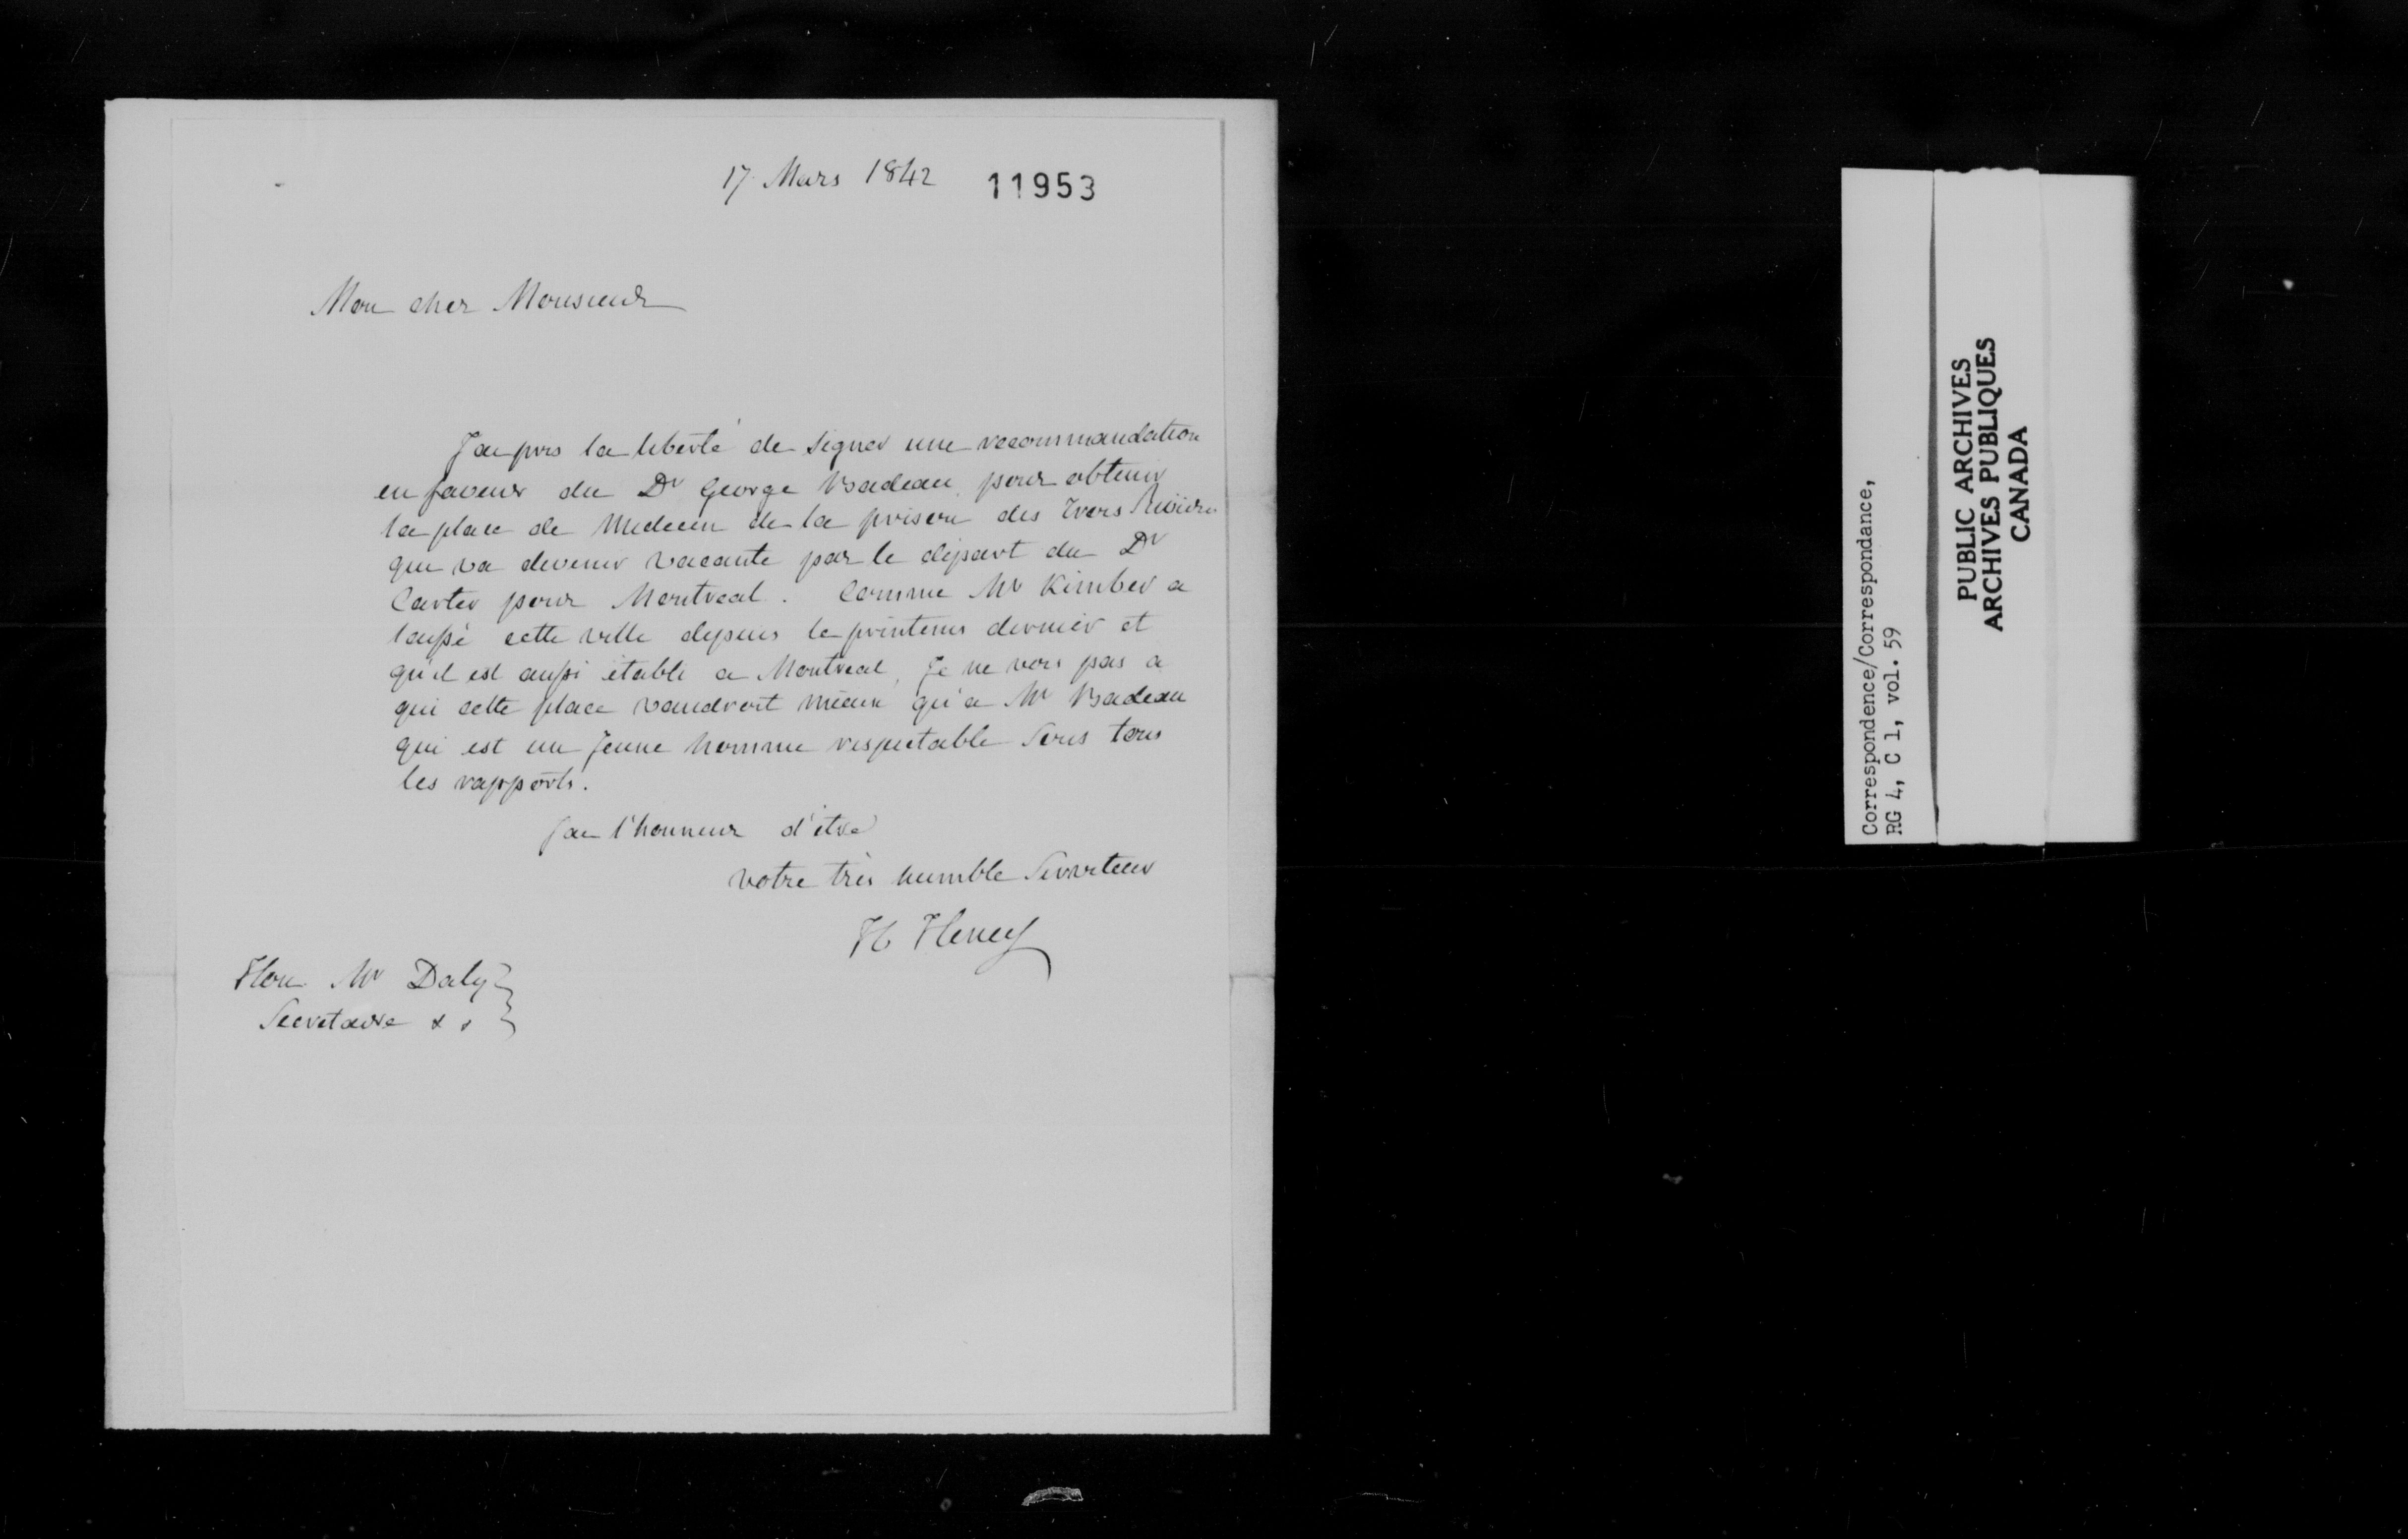 17 Mars 1842 11953
Mon cher Monsieur
J'ai pris la liberté de signer une recommandation
en faveur du Dr George Badeau, pour obtenir
la place de Medecin de la prison des Trois Rivières
qui va devenir vacante par le départ du Dr
Carter pour Montreal. Comme Mr Kimber a
laissé cette ville depuis le printems dernier et
qu'il est aussi établi a Montreal, Je ne vois pas a
qui cette place vaudroit mieux qu'a Mr Badeau
qui est un Jeune homme respectable Sous tous
les rapports.
J'ai l'honneur d'etre
votre très humble Serviteur
H Heney
Hon. Mr Daly
Secretaire & &
Correspondence/Correspondance,
RG 4, C 1, vol. 59
PUBLIC ARCHIVES
ARCHIVES PUBLIQUES
CANADA